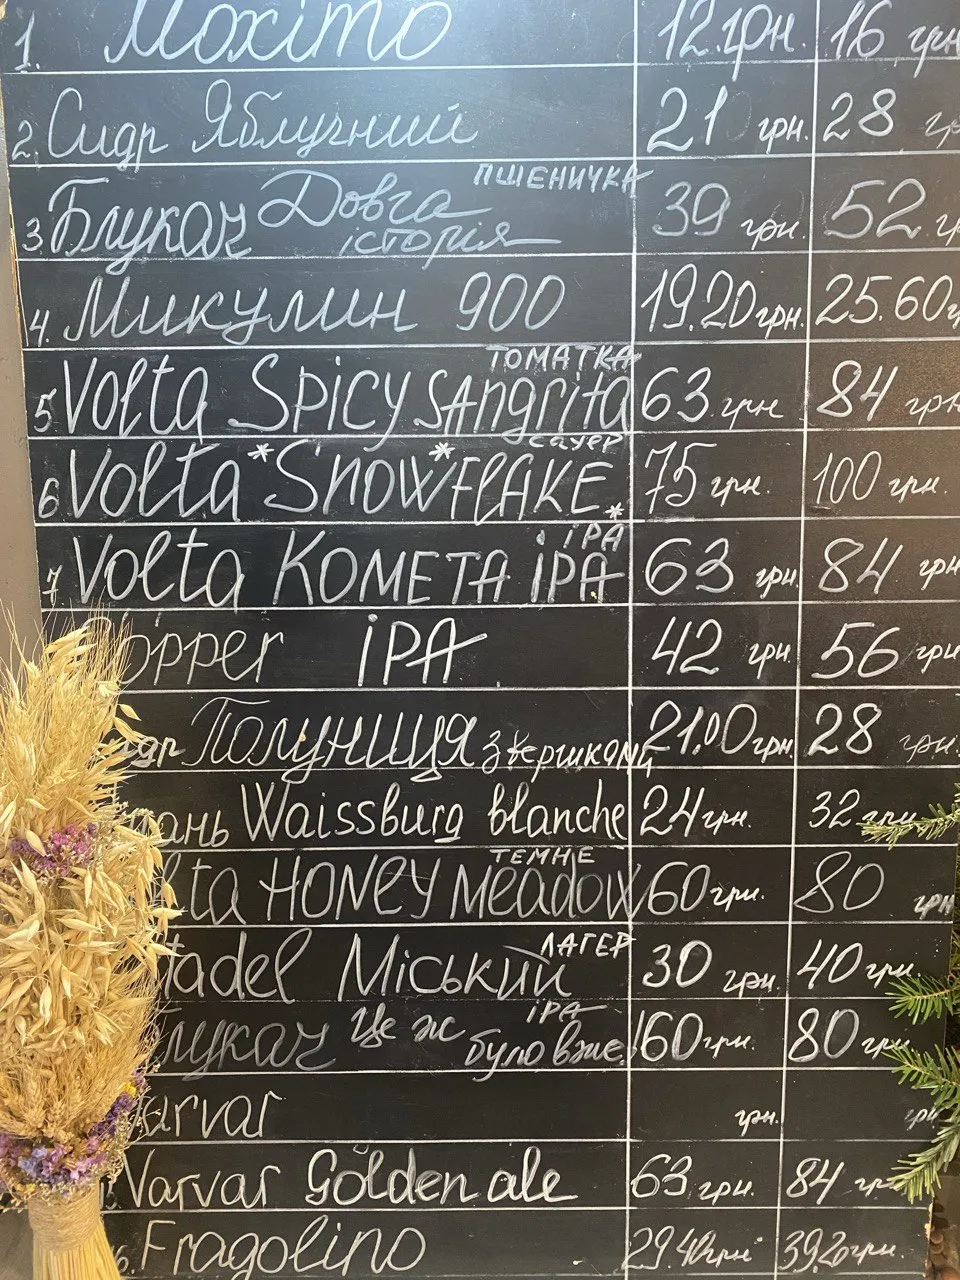 1. Мохіто 12 грн. 16 грн
2. Сидр Яблучний 21 грн. 28
3. Блукач Довга історія ПШЕНИЧКА 39 грн. 52
4. Микулин 900 19.20 грн. 25.60
5 Volta Spicy SAngrita ТОМАТКА 63 грн 84 грн
6 Volta *Snow* FlAKE * сауер 75 грн. 100 грн.
7 Volta КОМЕТА iPA iPA 63 грн. 84 грн
iPA 42 грн. 56 грн
Полуниця з вершками 21.00 грн 28 грн.
Waissburg blanche 24 грн. 32 грн
HONEY Meadow ТЕМНЕ 60 грн. 80 грн
Міський ЛАГЕР 30 грн. 40 грн.
Це ж було вже! іРА 60 грн. 80 грн
грн. грн
Varvar Gölden ale 63 грн. 84 грн
6. Fragolino 29.40 грн 39.20 грн.